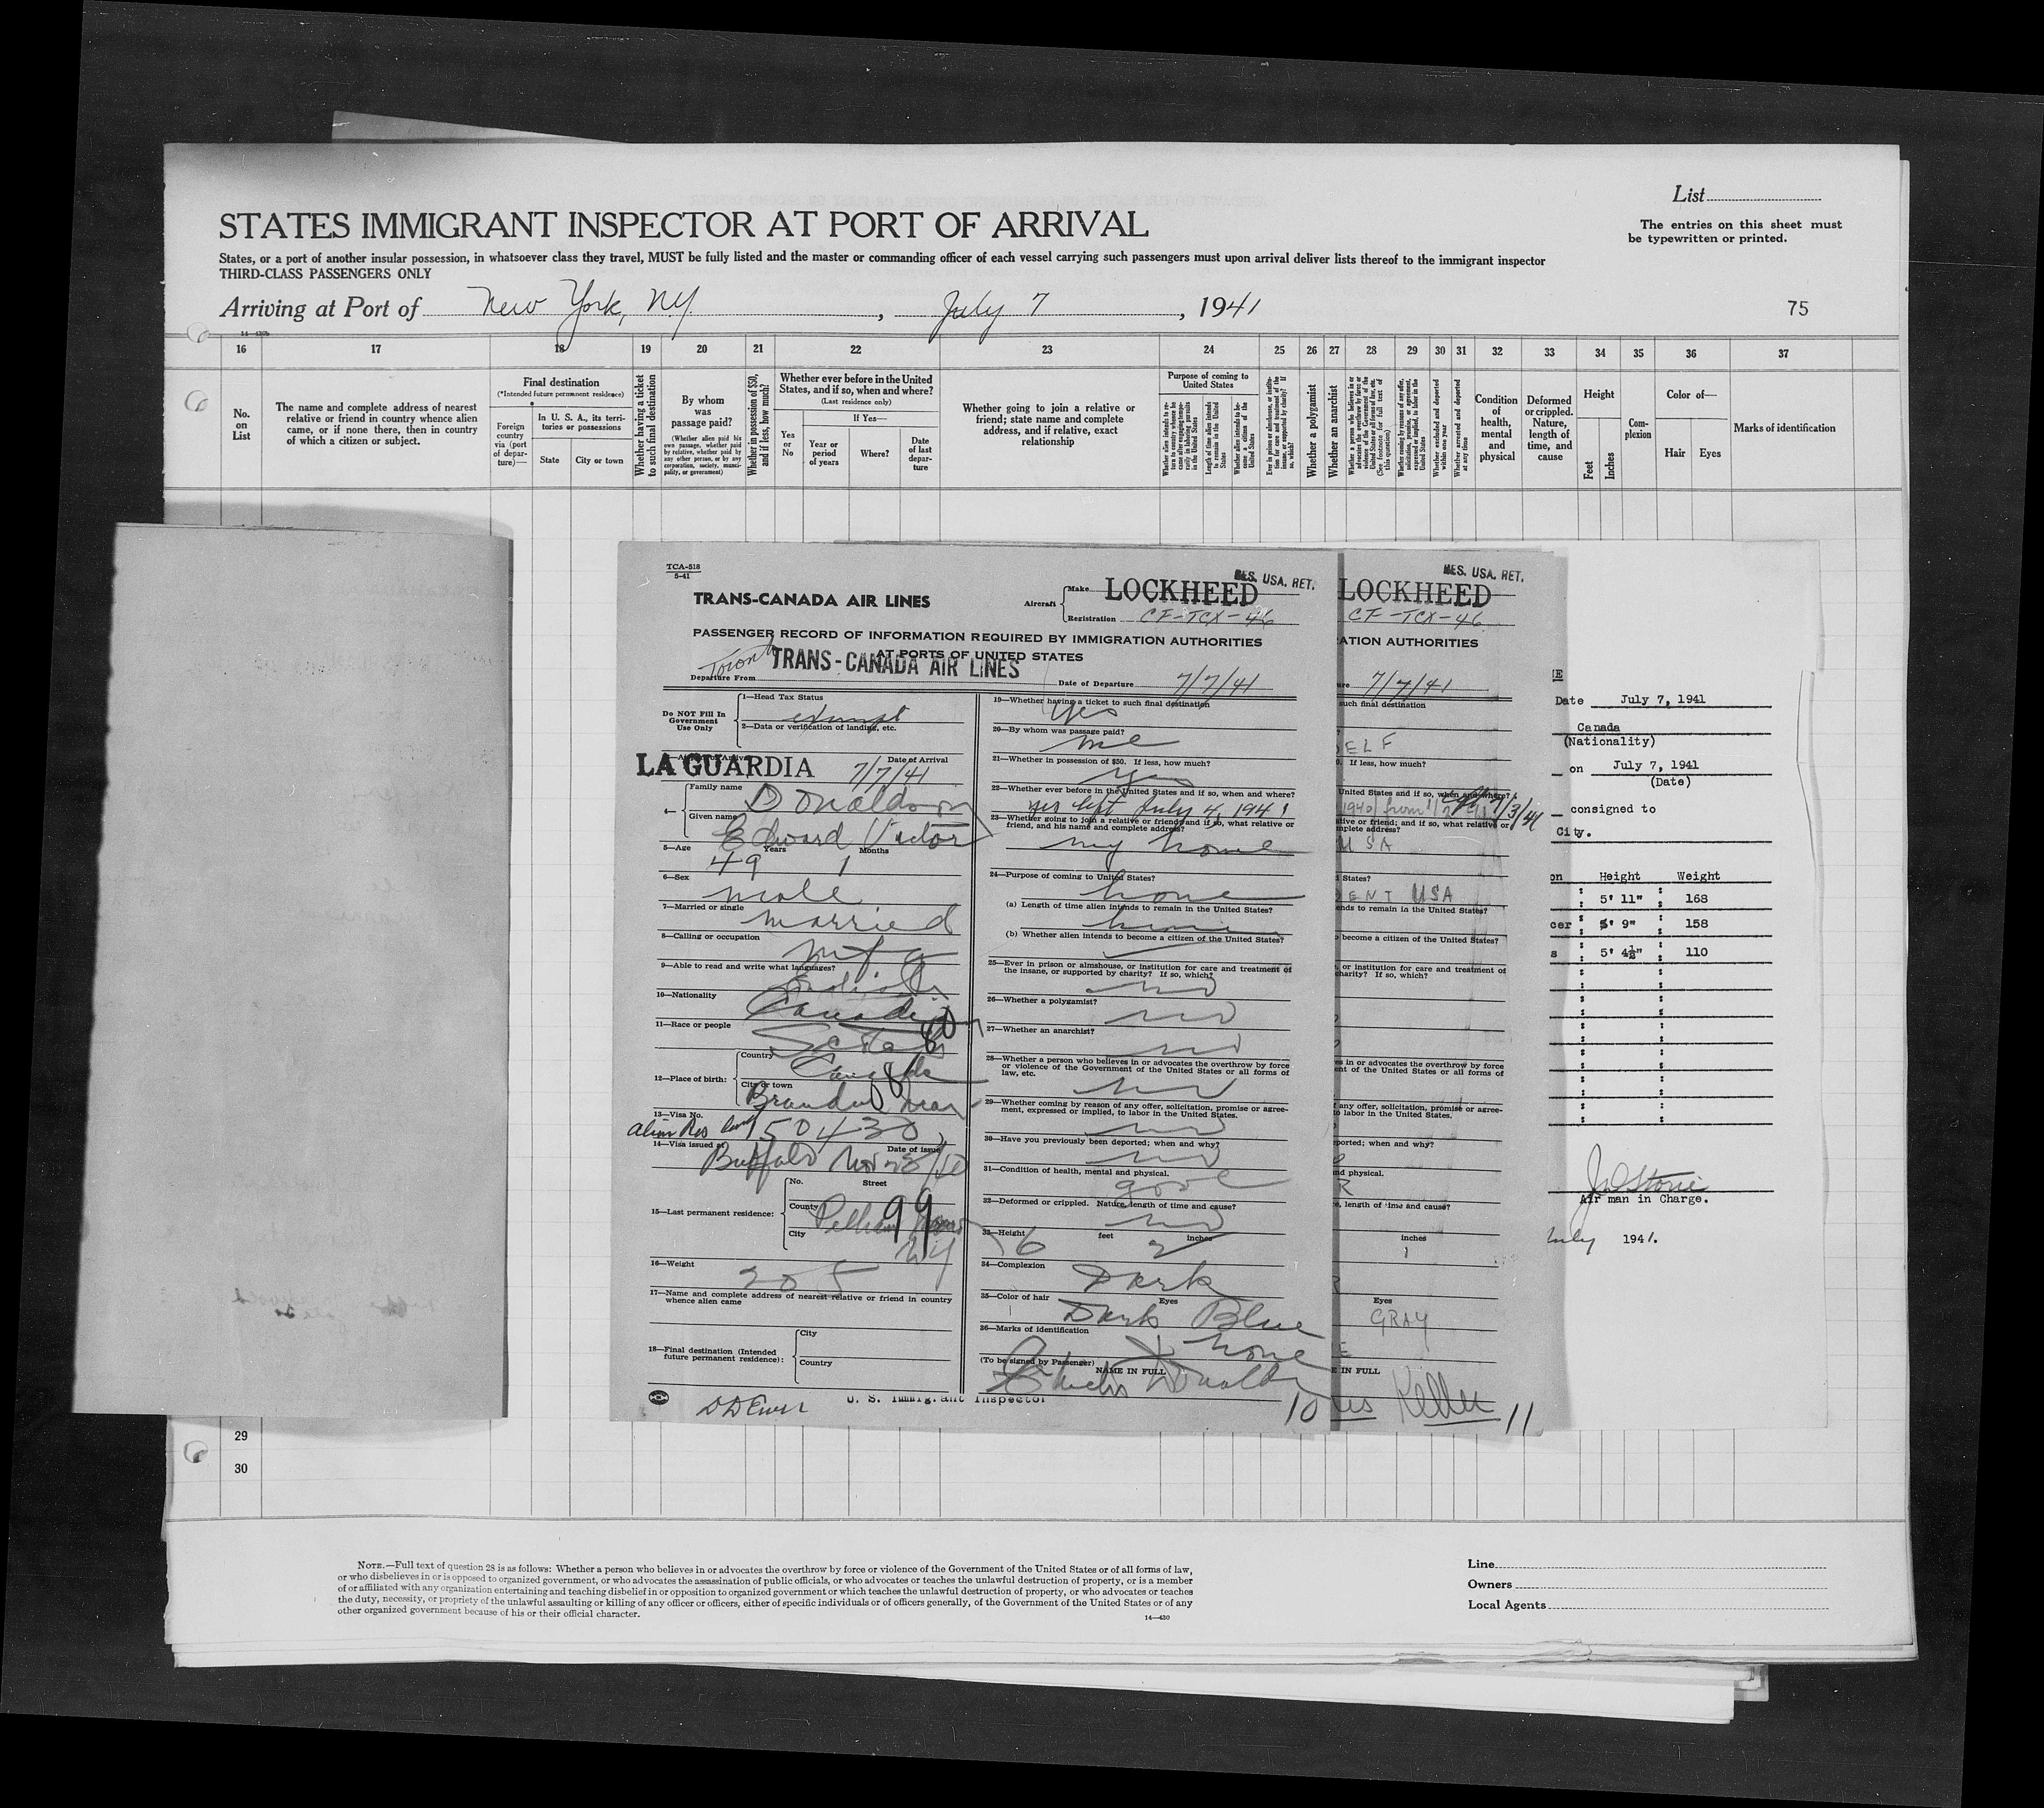 List
The entries on this sheet must
be typewritten or printed.
STATES IMMIGRANT INSPECTOR AT PORT OF ARRIVAL
States, or a port of another insular possession, in whatsoever class they travel, MUST be fully listed and the master or commanding officer of each vessel carrying such passengers must upon arrival deliver lists thereof to the immigrant inspector
THIRD-CLASS PASSENGERS ONLY
Arriving at Port of New York, N.Y., July 7, 1941
75
16 17 18 19 20 21 22 23 24 25 26 27 28 29 30 31 32 33 34 35 36 37
No.
on
List
The name and complete address of nearest
relative or friend in country whence alien
came, or if none there, then in country
of which a citizen or subject.
Final destination
(*Intended future permanent residence)
Foreign
country
via (port
of depar-
ture)—
In U. S. A., its terri-
tories or possessions
State
City or town
Whether having a ticket
to such final destination
By whom
was
passage paid?
(Whether alien paid his
own passage, whether paid
by relative, whether paid by
any other person, or by any
corporation, society, munici-
pality, or government)
Whether in possession of $50,
and if less, how much?
Whether ever before in the United
States, and if so, when and where?
(Last residence only)
Yes
or
No
If Yes—
Year or
period
of years
Where?
Date
of last
depar-
ture
Whether going to join a relative or
friend; state name and complete
address, and if relative, exact
relationship
Purpose of coming to
United States
Whether a polygamist
Whether an anarchist
Whether excluded and deported
within one year
Whether arrested and deported
at any time
Condition
of
health,
mental
and
physical
Deformed
or crippled.
Nature,
length of
time, and
cause
Height
Feet
Inches
Com-
plexion
Color of—
Hair
Eyes
Marks of identification
TCA-518
5-41
TRANS-CANADA AIR LINES
Aircraft
Make LOCKHEED
RES. USA. RET.
Registration CF-TCX-46
PASSENGER RECORD OF INFORMATION REQUIRED BY IMMIGRATION AUTHORITIES
AT PORTS OF UNITED STATES
Toronto TRANS-CANADA AIR LINES
Departure From
Date of Departure 7/7/41
Do NOT Fill In
Government
Use Only
1—Head Tax Status
exempt
2—Data or verification of landing, etc.
LA GUARDIA
Date of Arrival
7/7/41
4—
Family name Donaldson
Given name Edward Victor
5—Age 49 Years 1 Months
6—Sex male
7—Married or single married
8—Calling or occupation mfg
9—Able to read and write what languages?
English
10—Nationality Canadian
11—Race or people Scotch
12—Place of birth:
Country Canada
City or town Brandon Man
13—Visa No.
Alien Res 150430
14—Visa issued at Buffalo
Date of issue Nov 28/40
15—Last permanent residence:
No. Street
County
City Pelham Manor
NY
99
16—Weight 205
17—Name and complete address of nearest relative or friend in country
whence alien came
18—Final destination (Intended
future permanent residence):
City
Country
U. S. Immigrant Inspector
19—Whether having a ticket to such final destination
Yes
20—By whom was passage paid?
me
21—Whether in possession of $50. If less, how much?
yes
22—Whether ever before in the United States and if so, when and where?
yes left July 4, 1941
23—Whether going to join a relative or friend and if so, what relative or
friend, and his name and complete address?
my home
24—Purpose of coming to United States?
home
(a) Length of time alien intends to remain in the United States?
(b) Whether alien intends to become a citizen of the United States?
25—Ever in prison or almshouse, or institution for care and treatment of
the insane, or supported by charity? If so, which?
no
26—Whether a polygamist?
no
27—Whether an anarchist?
no
28—Whether a person who believes in or advocates the overthrow by force
or violence of the Government of the United States or all forms of
law, etc.
no
29—Whether coming by reason of any offer, solicitation, promise or agree-
ment, expressed or implied, to labor in the United States.
no
30—Have you previously been deported; when and why?
no
31—Condition of health, mental and physical.
good
32—Deformed or crippled. Nature, length of time and cause?
no
33—Height 6 feet 2 inches
34—Complexion
Dark
35—Color of hair Dark Eyes Blue
36—Marks of identification
none
(To be signed by Passenger)
NAME IN FULL
10
RES. USA. RET.
LOCKHEED
CF-TCX-46
ATION AUTHORITIES
7/7/41
such final destination
ELF
If less, how much?
United States and if so, when and where?
tive or friend; and if so, what relative or
mplete address?
USA
States?
DENT USA
ends to remain in the United States?
become a citizen of the United States?
, or institution for care and treatment of
charity? If so, which?
es in or advocates the overthrow by force
ent of the United States or all forms of
any offer, solicitation, promise or agree-
to labor in the United States.
ported; when and why?
nd physical.
R
e, length of time and cause?
inches
1
Eyes
GRAY
E IN FULL
Keller
11
Date July 7, 1941
Canada
(Nationality)
on July 7, 1941
(Date)
consigned to
City.
on Height Weight
5' 11" 168
cer 5' 9" 158
s 5' 4½" 110
Air man in Charge.
July 1941.
29
30
NOTE.—Full text of question 28 is as follows: Whether a person who believes in or advocates the overthrow by force or violence of the Government of the United States or of all forms of law,
or who disbelieves in or is opposed to organized government, or who advocates the assassination of public officials, or who advocates or teaches the unlawful destruction of property, or is a member
of or affiliated with any organization entertaining and teaching disbelief in or opposition to organized government or which teaches the unlawful destruction of property, or who advocates or teaches
the duty, necessity, or propriety of the unlawful assaulting or killing of any officer or officers, either of specific individuals or of officers generally, of the Government of the United States or of any
other organized government because of his or their official character.
14—430
Line
Owners
Local Agents